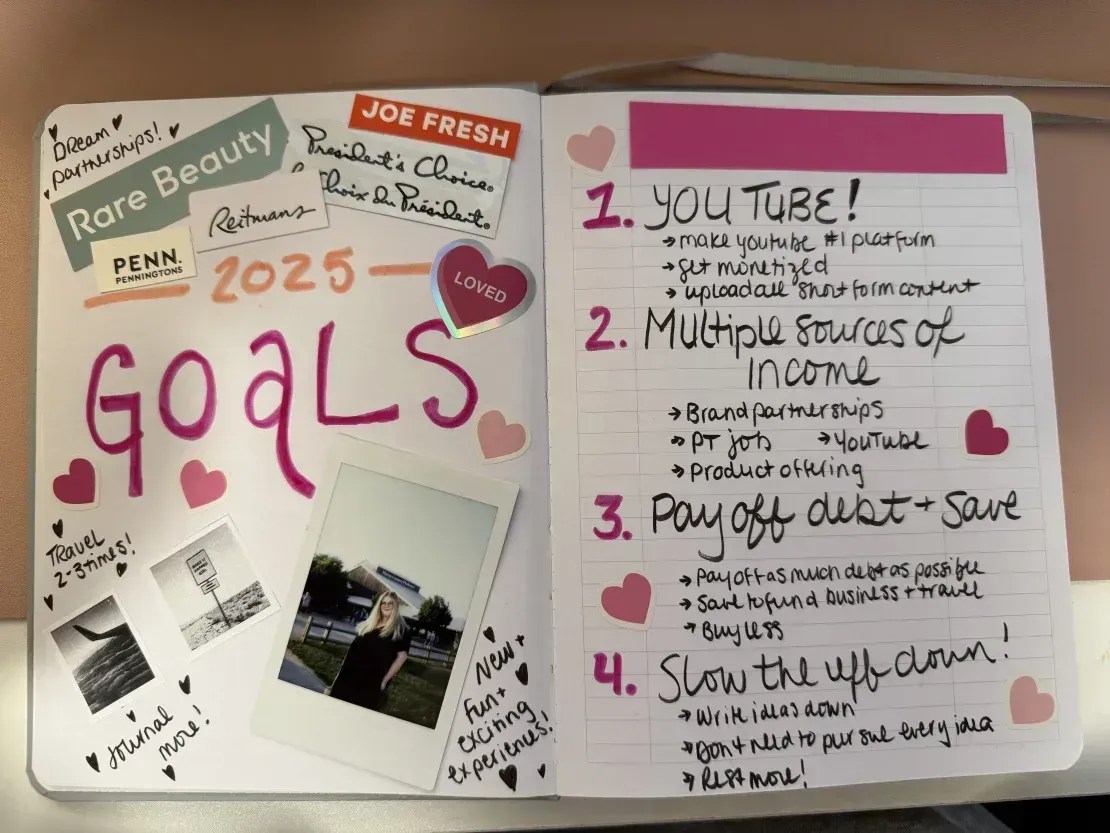 Dream
partnerships!
Rare Beauty
JOE FRESH
President's Choice
Le Choix du Président
Reitmans
PENN.
PENNINGTONS
2025
LOVED
GOALS
TRAVEL
2-3 times!
Journal
more!
New +
fun +
exciting
experiences!
1. YOUTUBE!
→ make youtube #1 platform
→ get monetized
→ upload all short form content
2. Multiple sources of
Income
→ Brand partnerships
→ PT job → YouTube
→ Product offering
3. Pay off debt + save
→ Pay off as much debt as possible
→ Save to fund business + travel
→ Buy less
4. Slow the uff down!
→ Write ideas down
→ Don't need to pursue every idea
→ Rest more!